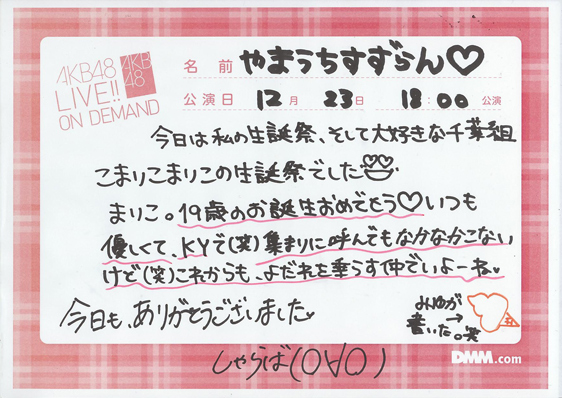 AKB48
LIVE!!
ON DEMAND
AKB
48
名前 やまうちすずらん♡
公演日 12月 23日 18:00 公演
今日は私の生誕祭、そして大好きな千葉組
こまりこまりこの生誕祭でした
まりこ。19歳のお誕生おめでとう♡いつも
優しくて、KYで(笑)集まりに呼んでもなかなかこない
けど(笑)これからも、よだれを垂らす仲でいよーね♥
今日も、ありがとうございました♥
みゆが
→
書いた。笑
DMM.com
しゃらば(O∀O)